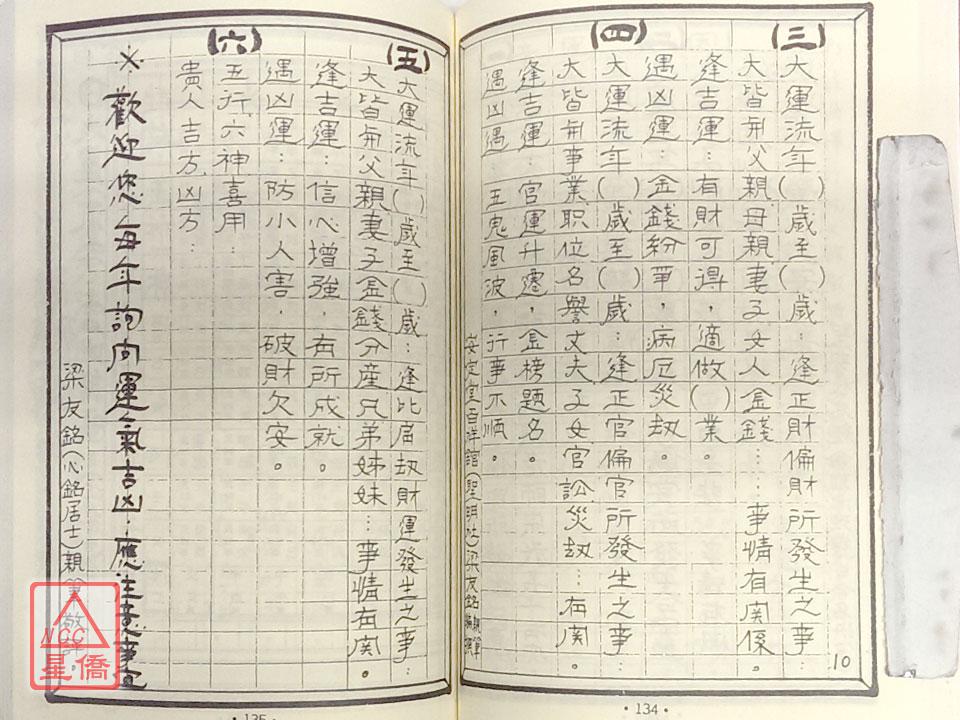 (三)大運流年( )歲至( )歲：逢正財偏財所發生之事：
大皆與父親母親妻子女人金錢……事情有關係。
逢吉運：有財可得，適做( )業。
遇凶運：金錢紛爭，病厄災劫。
(四)大運流年( )歲至( )歲：逢正官偏官所發生之事：
大皆與事業職位名譽丈夫子女官訟災劫…有關。
逢吉運：官運升遷，金榜題名。
遇凶運：五鬼風波，行事不順。
10
安定堂百祥館 梁友銘
•134•
(五)大運流年( )歲至( )歲：逢比肩劫財運發生之事：
大皆與父親妻子金錢分產兄弟姊妹…事情有關。
逢吉運：信心增強，有所成就。
遇凶運：防小人害，破財欠安。
(六)五行六神喜用：
貴人吉方凶方：
※歡迎您每年詢問運氣吉凶…應注意之事宜
梁友銘(心銘居士)親筆敬詳。
•135•
NCC
星僑